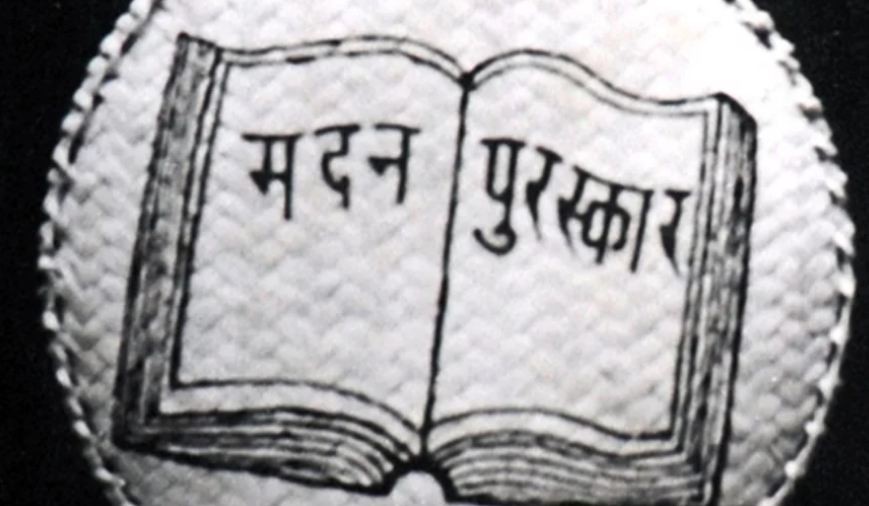 मदन पुरस्कार